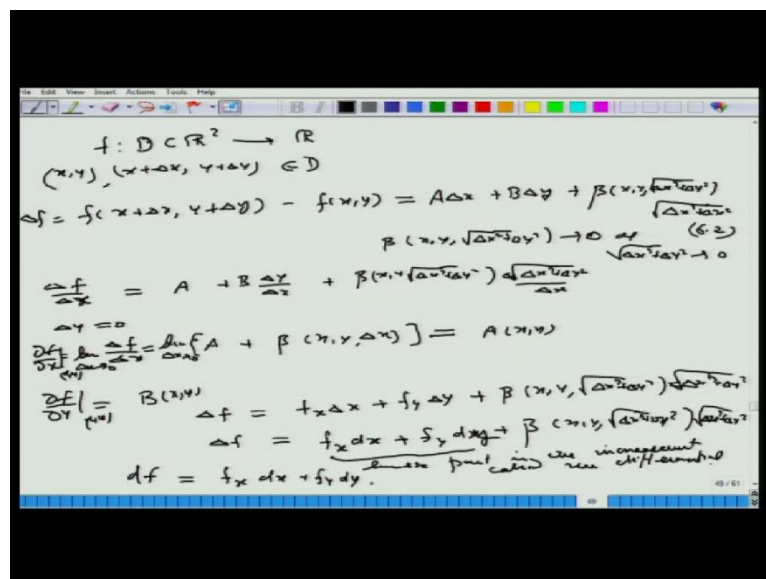 File Edit View Insert Actions Tools Help
f : D ⊂ ℝ² → ℝ
(x,y), (x+Δx, y+Δy) ∈ D
Δf = f(x+Δx, y+Δy) − f(x,y) = AΔx + BΔy + β(x,y,√Δx²+Δy²) √Δx²+Δy²
(6.2)
β(x,y,√Δx²+Δy²) → 0 as √Δx²+Δy² → 0
Δf/Δx = A + B Δy/Δx + β(x,y,√Δx²+Δy²) √Δx²+Δy²/Δx
Δy = 0
∂f/∂x|(x,y) = lim Δx→0 Δf/Δx = lim Δx→0 [A + β(x,y,Δx)] = A(x,y)
∂f/∂y|(x,y) = B(x,y)
Δf = fx Δx + fy Δy + β(x,y,√Δx²+Δy²) √Δx²+Δy²
Δf = fx dx + fy dy + β(x,y,√Δx²+Δy²) √Δx²+Δy²
linear part in the increment
called the differential
df = fx dx + fy dy.
49 / 61
49